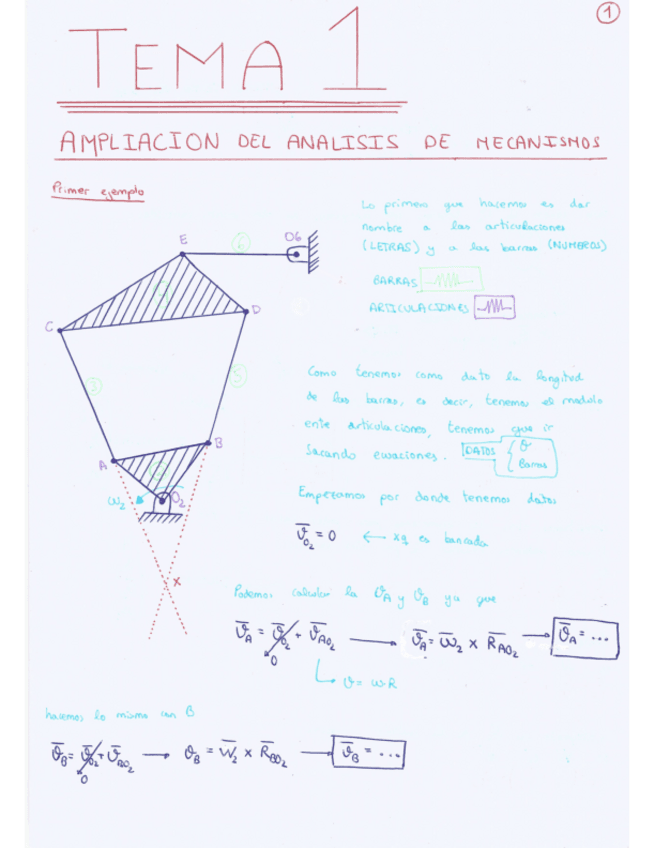 1
TEMA 1
AMPLIACION DEL ANALISIS DE MECANISMOS
Primer ejemplo
Lo primero que hacemos es dar
nombre a las articulaciones
(LETRAS) y a las barras (NUMEROS)
BARRAS
ARTICULACIONES
E
6
O6
C
D
3
5
A
B
ω₂
O₂
x
Como tenemos como dato la longitud
de las barras, es decir, tenemos el modulo
ente articulaciones, tenemos que ir
sacando ecuaciones. DATOS { θ
Barras
Empezamos por donde tenemos datos
v̄O₂ = 0 ← xq es bancada
Podemos calcular la vA y vB ya que
v̄A = v̄O₂ + v̄AO₂ → v̄A = ω̄₂ x R̄AO₂ → v̄A = ...
0
v = ω·R
hacemos lo mismo con B
v̄B = v̄O₂ + v̄BO₂ → vB = ω̄₂ x R̄BO₂ → v̄B = ...
0